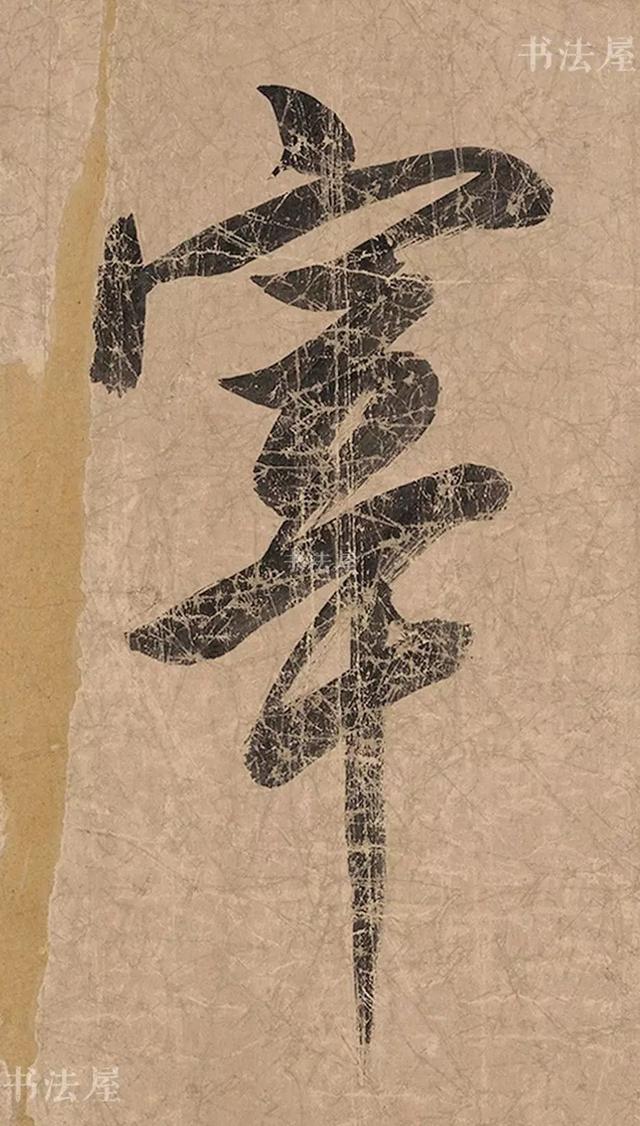 书法屋
宰
书法屋
书法屋